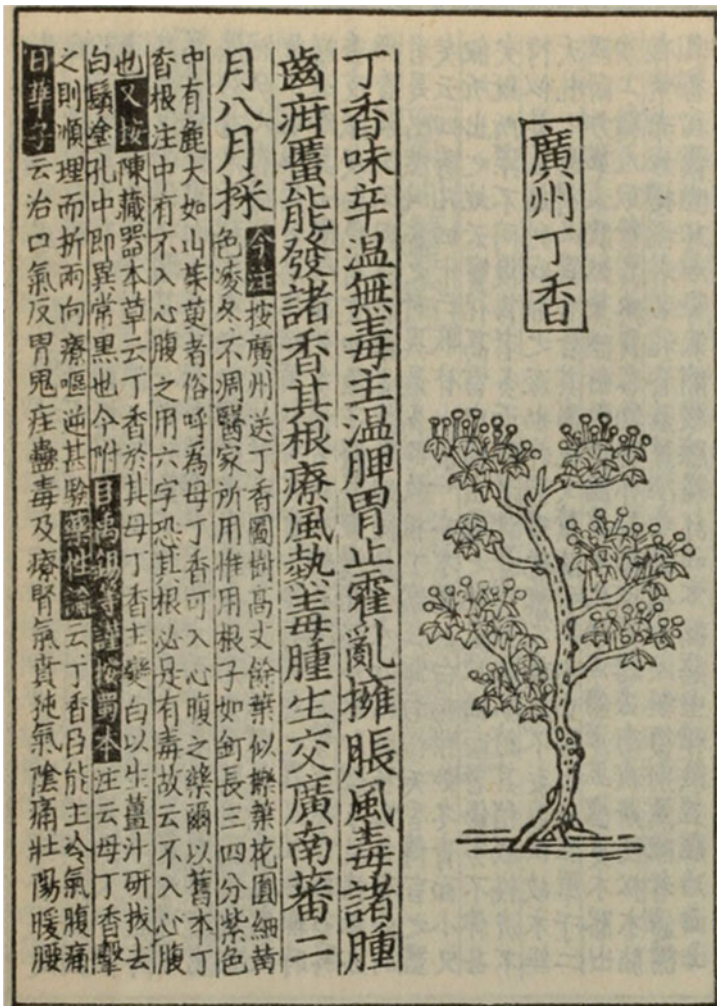 廣州丁香
丁香味辛温無毒主温脾胃止霍亂擁脹風毒諸腫
齒疳䘌能發諸香其根療風熱毒腫生交廣南蕃二
月八月採
今注按廣州送丁香圖樹高丈餘葉似櫟葉花圓細黃
色凌冬不凋醫家所用惟用根子如釘長三四分紫色
中有麄大如山茱萸者俗呼爲母丁香可入心腹之藥爾以舊本丁
香根注中有不入心腹之用六字恐其根必是有毒故云不入心腹
也又按陳藏器本草云丁香於其母丁香主變白以生薑汁研拔去
白鬚塗孔中即異常黑也今附臣禹錫等謹按蜀本注云母丁香擊
之則順理而折兩向療嘔逆甚驗藥性論云丁香臣能主冷氣腹痛
日華子云治口氣反胃鬼疰蠱毒及療腎氣賁㹠氣陰痛壯陽暖腰